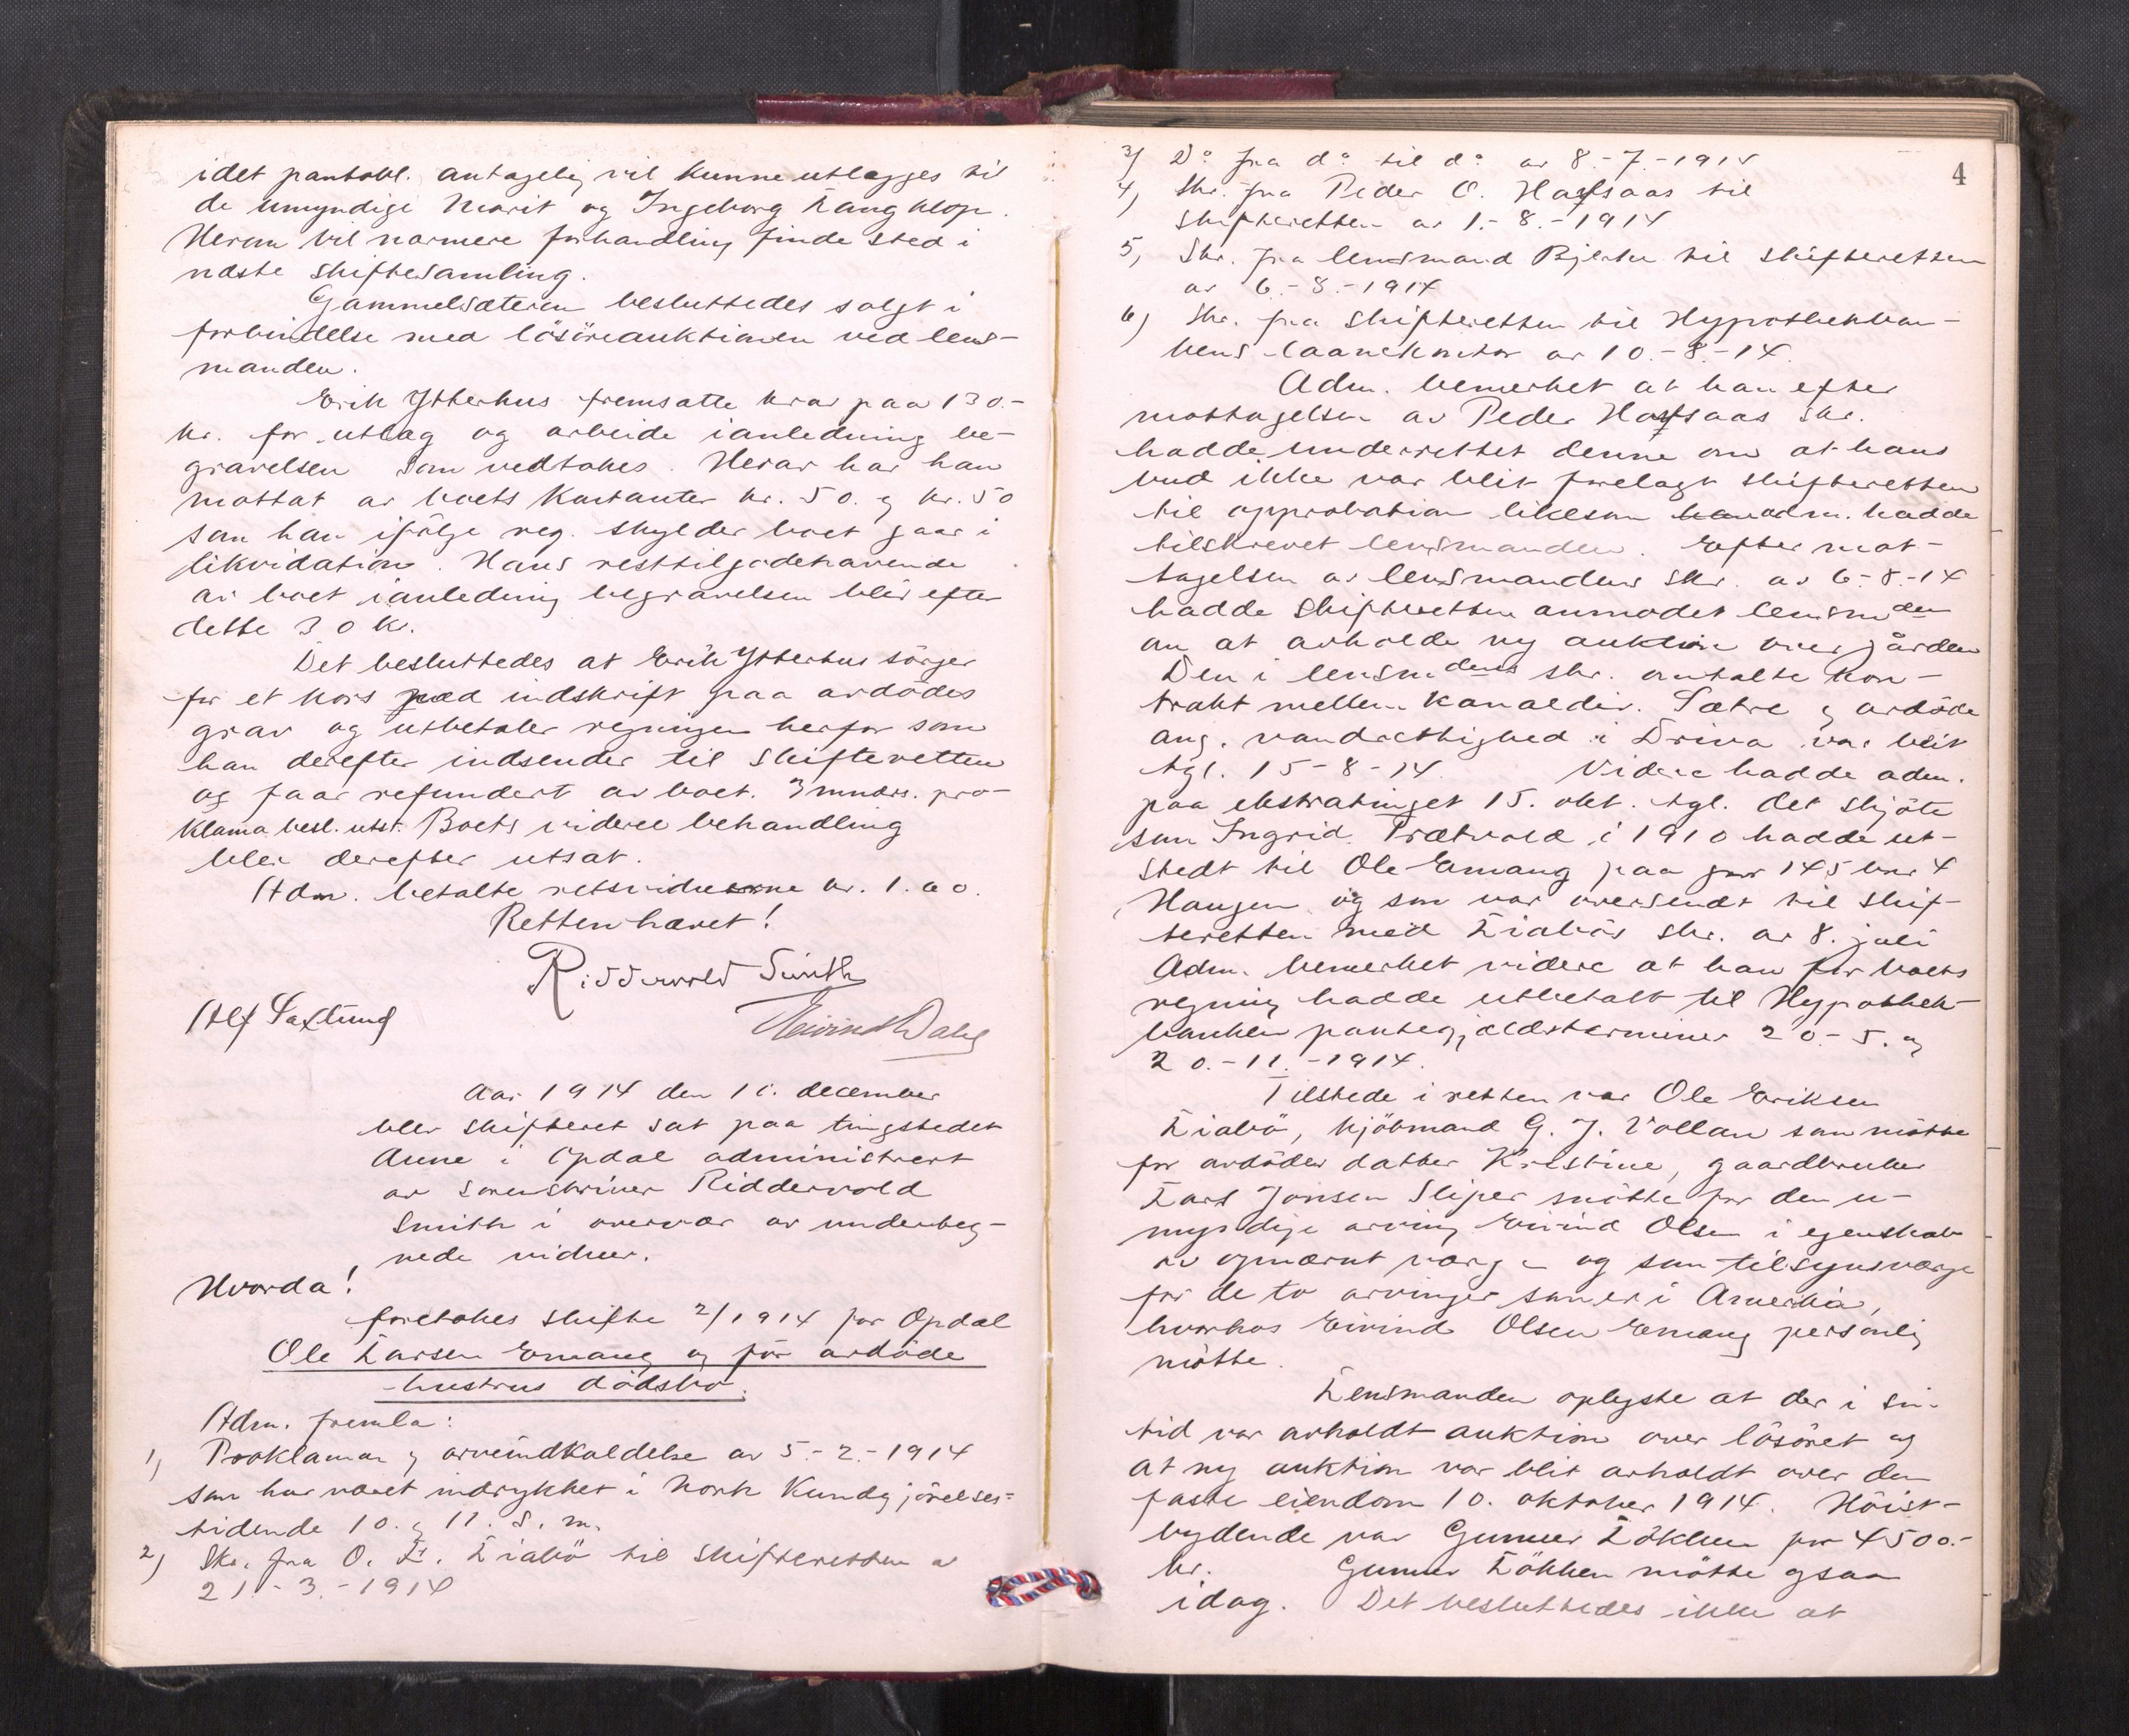 idet pantobl. antagelig vil kunne utlægges til
de umyndige Marit og Ingeborg Langklop.
Herom vil nærmere forhandling finde sted i
næste skiftesamling.
Gammelsæteren besluttedes solgt i
forbindelse med lösöreauktionen ved lens-
manden.
Erik Ytterhus fremsatte krav paa 130.-
kr. for utlæg og arbeide i anledning be-
gravelsen som vedtokes. Herav har han
mottat av boets kontanter kr. 50. og kr. 50
som han ifölge reg. skylder boet gaar i
likvidation. Hans resttilgodehavende
av boet i anledning begravelsen blir efter
dette 30 kr.
Det besluttedes at Erik Ytterhus sörger
for et kors med indskrift paa avdödes
grav og utbetaler regningen herfor som
han derefter indsender til skifteretten
og faar refundert av boet. 3 mndrs. pro-
klama besl. utst. Boets videre behandling
blev derefter utsat.
Adm. betalte retsvidnerne kr. 1.60.
Retten hævet!
Ridderwold Smith
Alf Saxlund
Eivind Dahl
Aar 1914 den 16. december
blev skifteret sat paa tingstedet
Aune i Opdal administrert
av sorenskriver Riddervold
Smith i overvær av underteg-
nede vidner.
Hvorda!
foretokes skifte 2/1914 for Opdal
Ole Larsen Emang og før avdöde
hustrus dödsbo.
Adm. fremla:
1) Proklama og arveindkaldelse av 5.-2.-1914
som har været indrykket i Norsk Kundgjörelses-
tidende 10. og 11. s. m.
2) Skr. fra O. E. Liabö til skifteretten av
21.-3.-1914
4
3) Do fra do til do av 8.-7.-1914
4) Skr. fra Peder O. Hafsaas til
skifteretten av 1.-8.-1914
5) Skr. fra lensmand Bjerke til skifteretten
av 6.-8.-1914
6) Skr. fra skifteretten til Hypothekban-
kens laanekontor av 10.-8.-14.
Adm. bemerket at han efter
mottagelsen av Peder Hafsaas skr.
hadde underrettet denne om at hans
bud ikke var blit forelagt skifteretten
til approbation likesom han adm. hadde
tilskrevet lensmanden. Efter mot-
tagelsen av lensmandens skr. av 6.-8.-14
hadde skifteretten anmodet lensmden
om at avholde ny auktion over gården
Den i lensmdens skr. omtalte kon-
trakt mellem kanaldir. Sætre og avdöde
ang. vandrettighed i Driva var blit
tgl. 15-8-14. Videre hadde adm.
paa ekstratinget 15. okt. tgl. det skjöte
som Ingrid Prætvold i 1910 hadde ut-
stedt til Ole Emang paa gnr 145 bnr 4
Haugen og som var oversendt til skif-
teretten med Liabös skr. av 8. juli
Adm. bemerket videre at han for boets
regning hadde utbetalt til Hypothek-
banken pantegjældsterminer 20.-5. og
20.-11.-1914.
Tilstede i retten var Ole Eriksen
Liabö, kjöbmand G. J. Vollan som mötte
for avdödes datter Kristine, gaardbruker
Lars Jonsen Sliper mötte for den u-
myndige arving Eivind Olsen i egenskab
av opnævnt værge og som tilsynsværge
for de to arvinger som er i Amerika,
hvorhos Eivind Olsen Emang personlig
mötte.
Lensmanden oplyste at der i sin
tid var avholdt auktion over lösöret og
at ny auktion var blit avholdt over den
faste eiendom 10. oktober 1914. Höist-
bydende var Gunner Lökken for 4500.-
kr. Gunner Lökken mötte ogsaa
idag. Det besluttedes ikke at